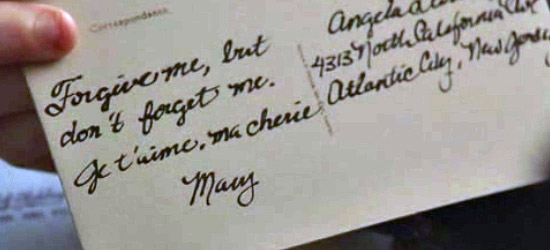 Correspondence.
Forgive me, but
don't forget me.
Je t'aime, ma cherie
Mary
Angela
4313 North California Ave
Atlantic City, New Jersey